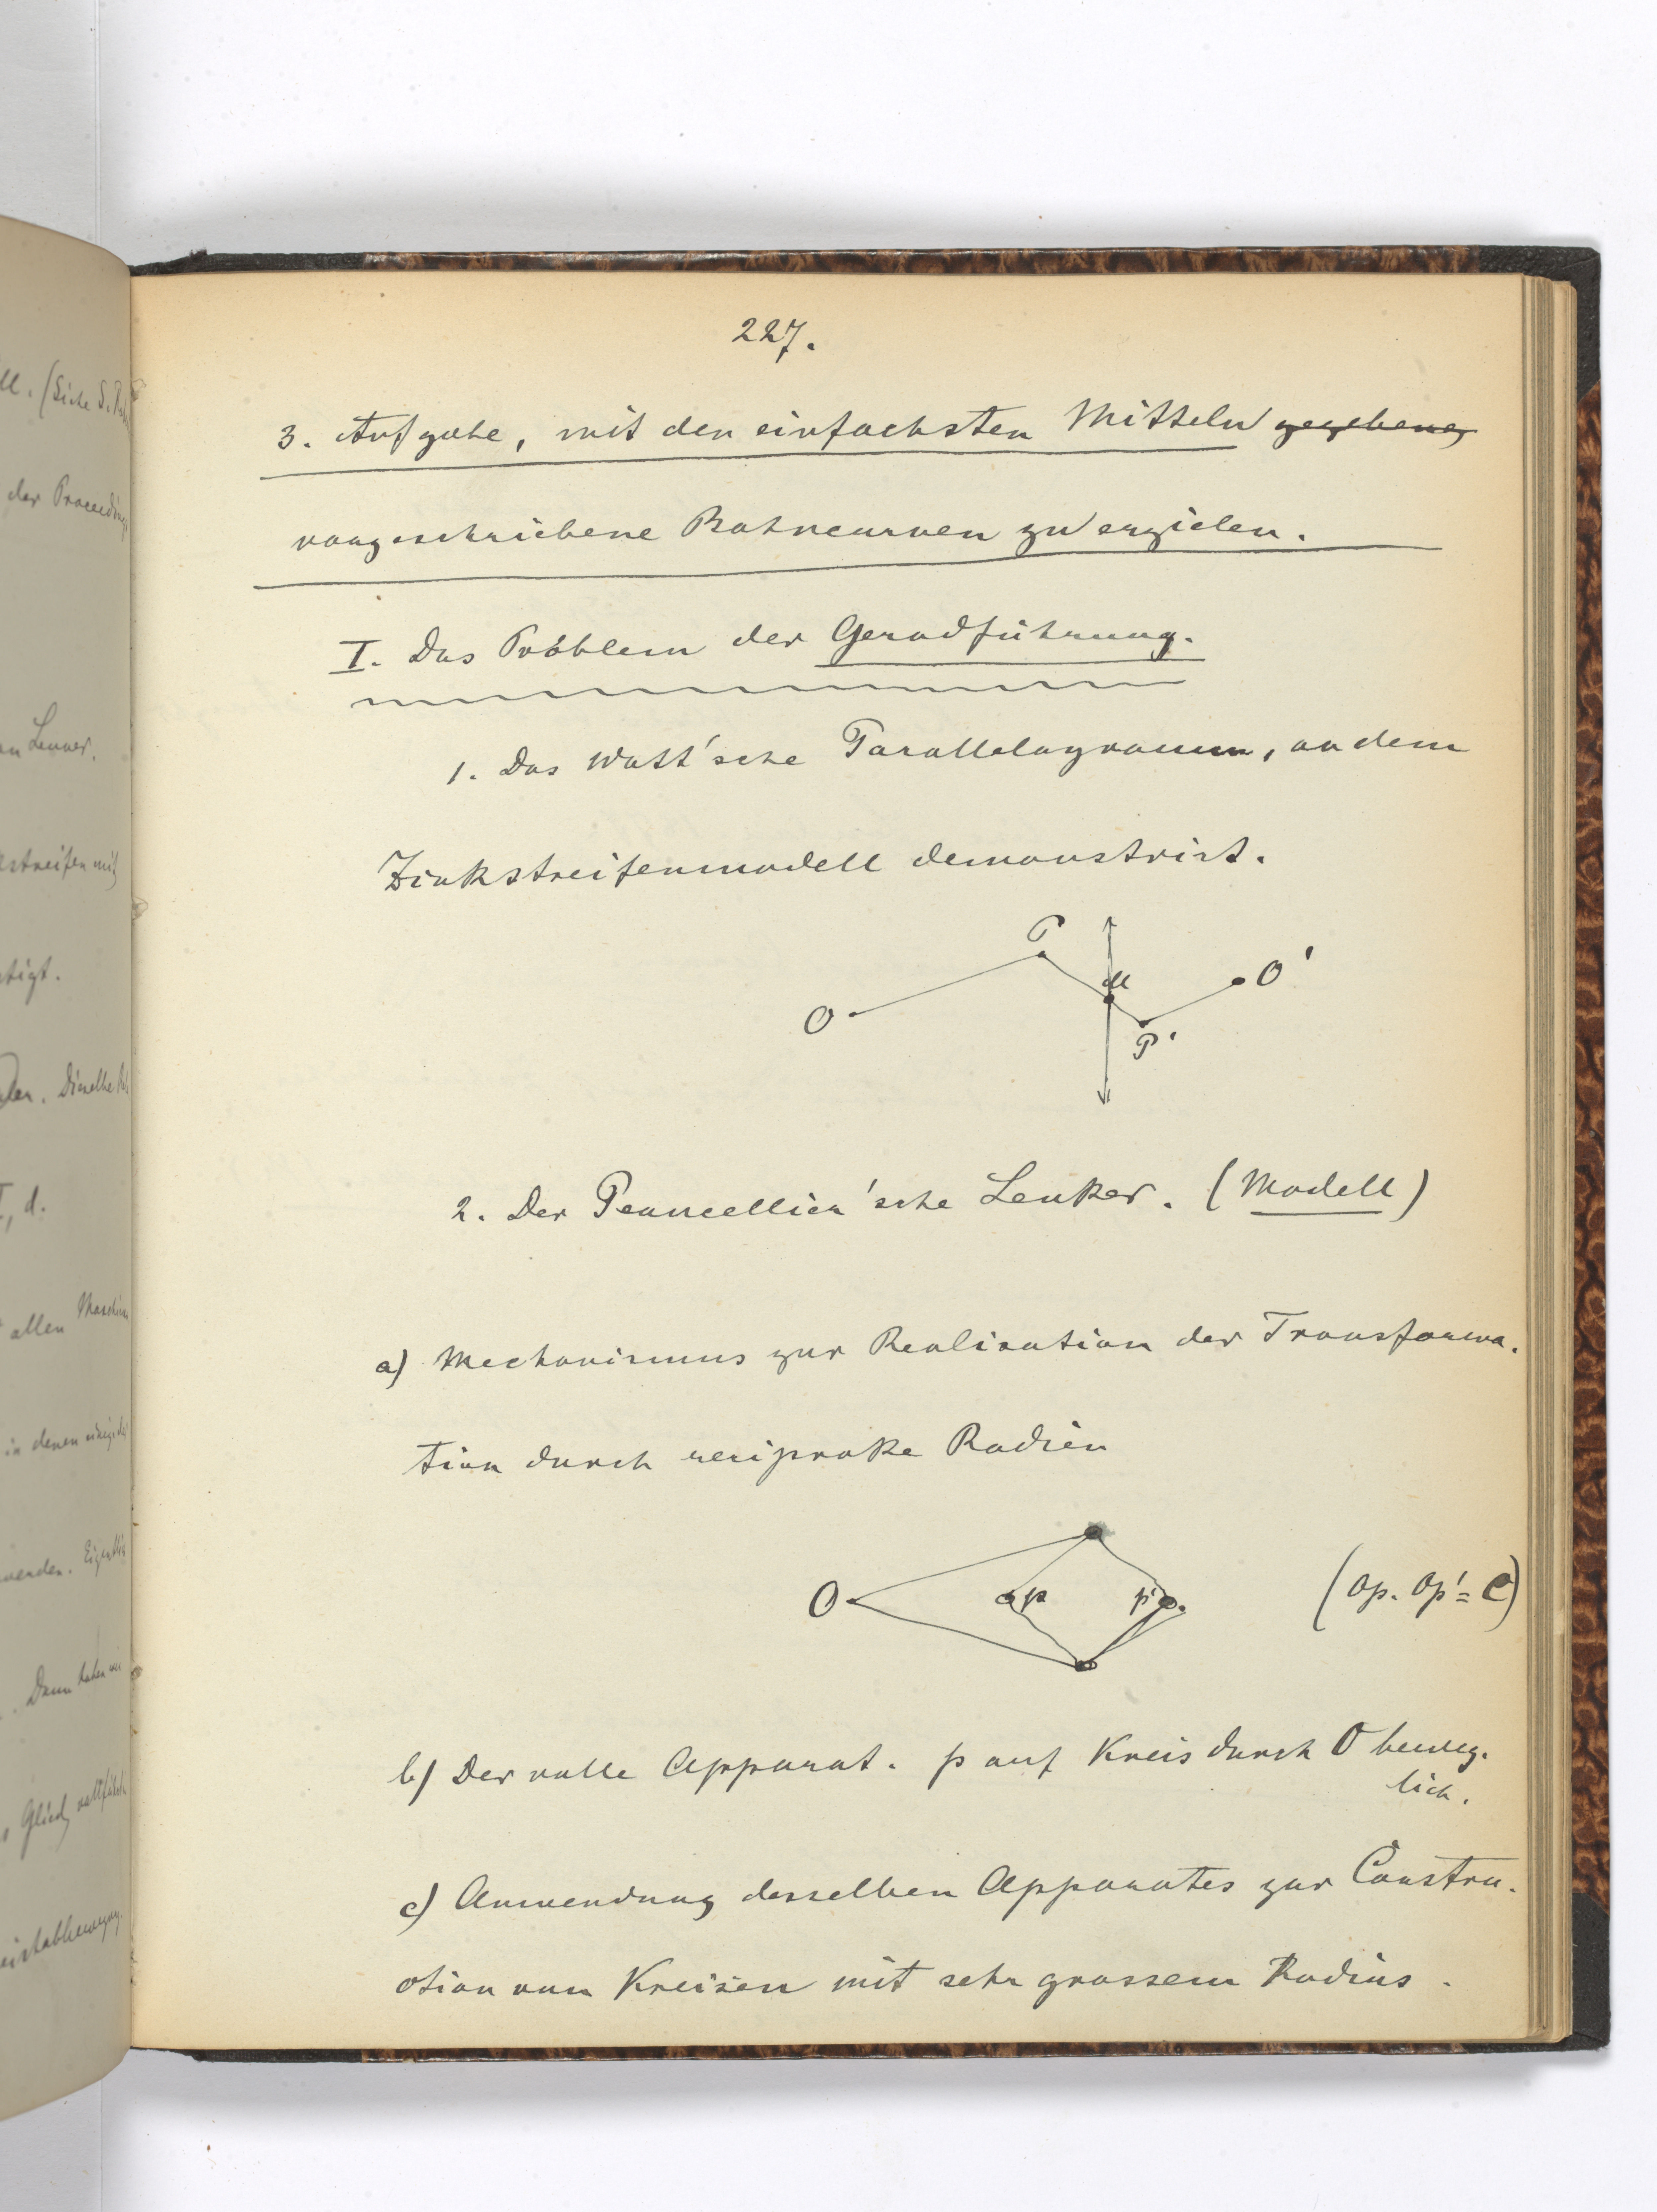 227.
3. Aufgabe, mit den einfachsten Mitteln gegebene
vorgeschriebene Bahncurven zu erzielen.
I. Das Problem der Geradführung.
1. Das Watt'sche Parallelogramm, an dem
Zinkstreifenmodell demonstrirt.
P
M
O
O'
P'
2. Der Peaucellier'sche Lenker. (Modell)
a) Mechanismus zur Realisation der Transforma-
tion durch reciproke Radien
O p p' (Op. Op' = C)
b) Der volle Apparat. p auf Kreis durch O beweg-
lich.
c) Anwendung desselben Apparates zur Constru-
ction von Kreisen mit sehr grossem Radius.
ll. (Siehe S.
der Proceedings
streifen mit
tigt.
den. Dieselbe
I, d.
allen Maschinen
in denen
wenden.
Dann haben wir
Glied